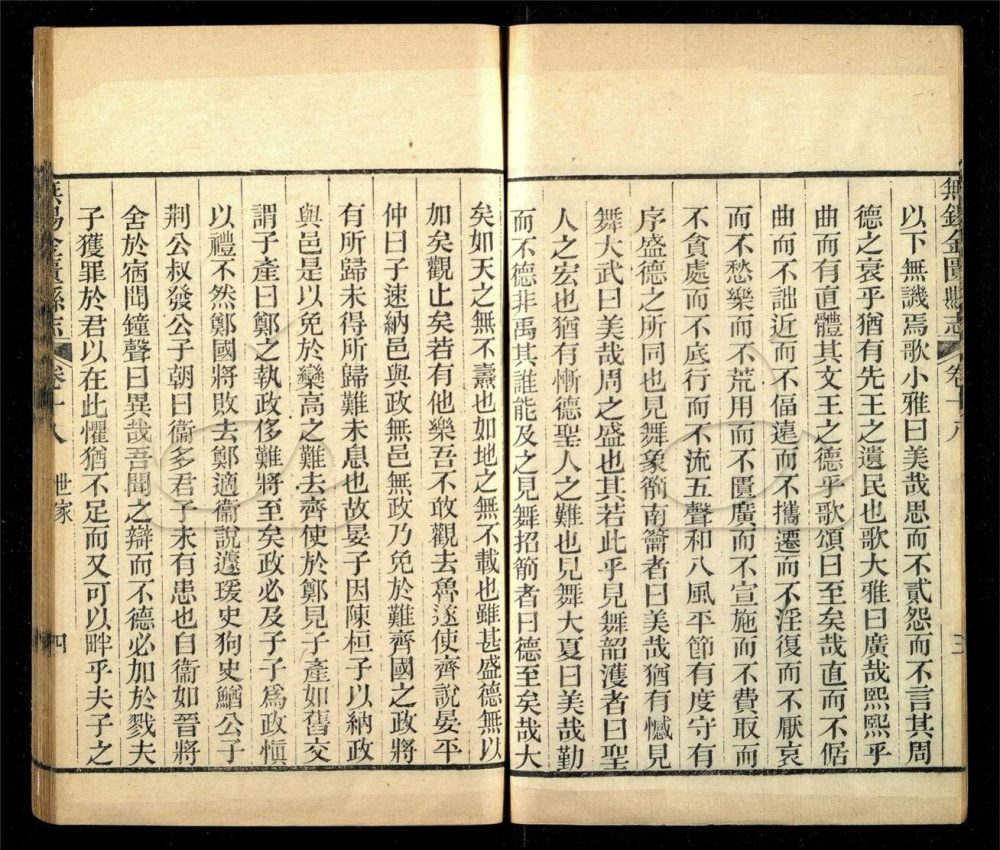 無錫金匱縣志 卷十八 三
以下無譏焉歌小雅曰美哉思而不貳怨而不言其周
德之衰乎猶有先王之遺民也歌大雅曰廣哉熙熙乎
曲而有直體其文王之德乎歌頌曰至矣哉直而不倨
曲而不詘近而不偪遠而不攜遷而不淫復而不厭哀
而不愁樂而不荒用而不匱廣而不宣施而不費取而
不貪處而不底行而不流五聲和八風平節有度守有
序盛德之所同也見舞象箾南籥者曰美哉猶有憾見
舞大武曰美哉周之盛也其若此乎見舞韶濩者曰聖
人之宏也猶有慚德聖人之難也見舞大夏曰美哉勤
而不德非禹其誰能及之見舞招箾者曰德至矣哉大
矣如天之無不燾也如地之無不載也雖甚盛德無以
加矣觀止矣若有他樂吾不敢觀去魯遂使齊說晏平
仲曰子速納邑與政無邑無政乃免於難齊國之政將
有所歸未得所歸難未息也故晏子因陳桓子以納政
與邑是以免於欒高之難去齊使於鄭見子產如舊交
謂子產曰鄭之執政侈難將至矣政必及子子爲政愼
以禮不然鄭國將敗去鄭適衞說蘧瑗史狗史鰌公子
荆公叔發公子朝曰衞多君子未有患也自衞如晉將
舍於宿聞鐘聲曰異哉吾聞之辯而不德必加於戮夫
子獲罪於君以在此懼猶不足而又可以畔乎夫子之
無錫金匱縣志 卷十八 世家 四